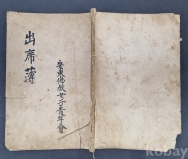 出席簿
安東佛敎女子靑年會
kobay